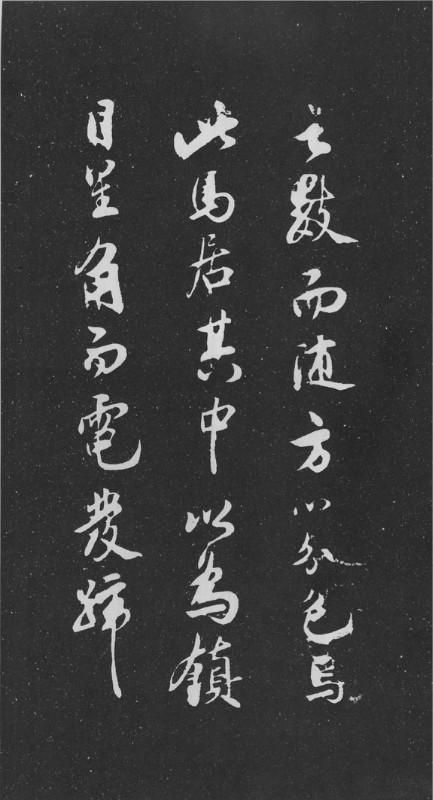 之數而隨方以分色焉
此馬居其中以為鎮
目星角而電發蹄